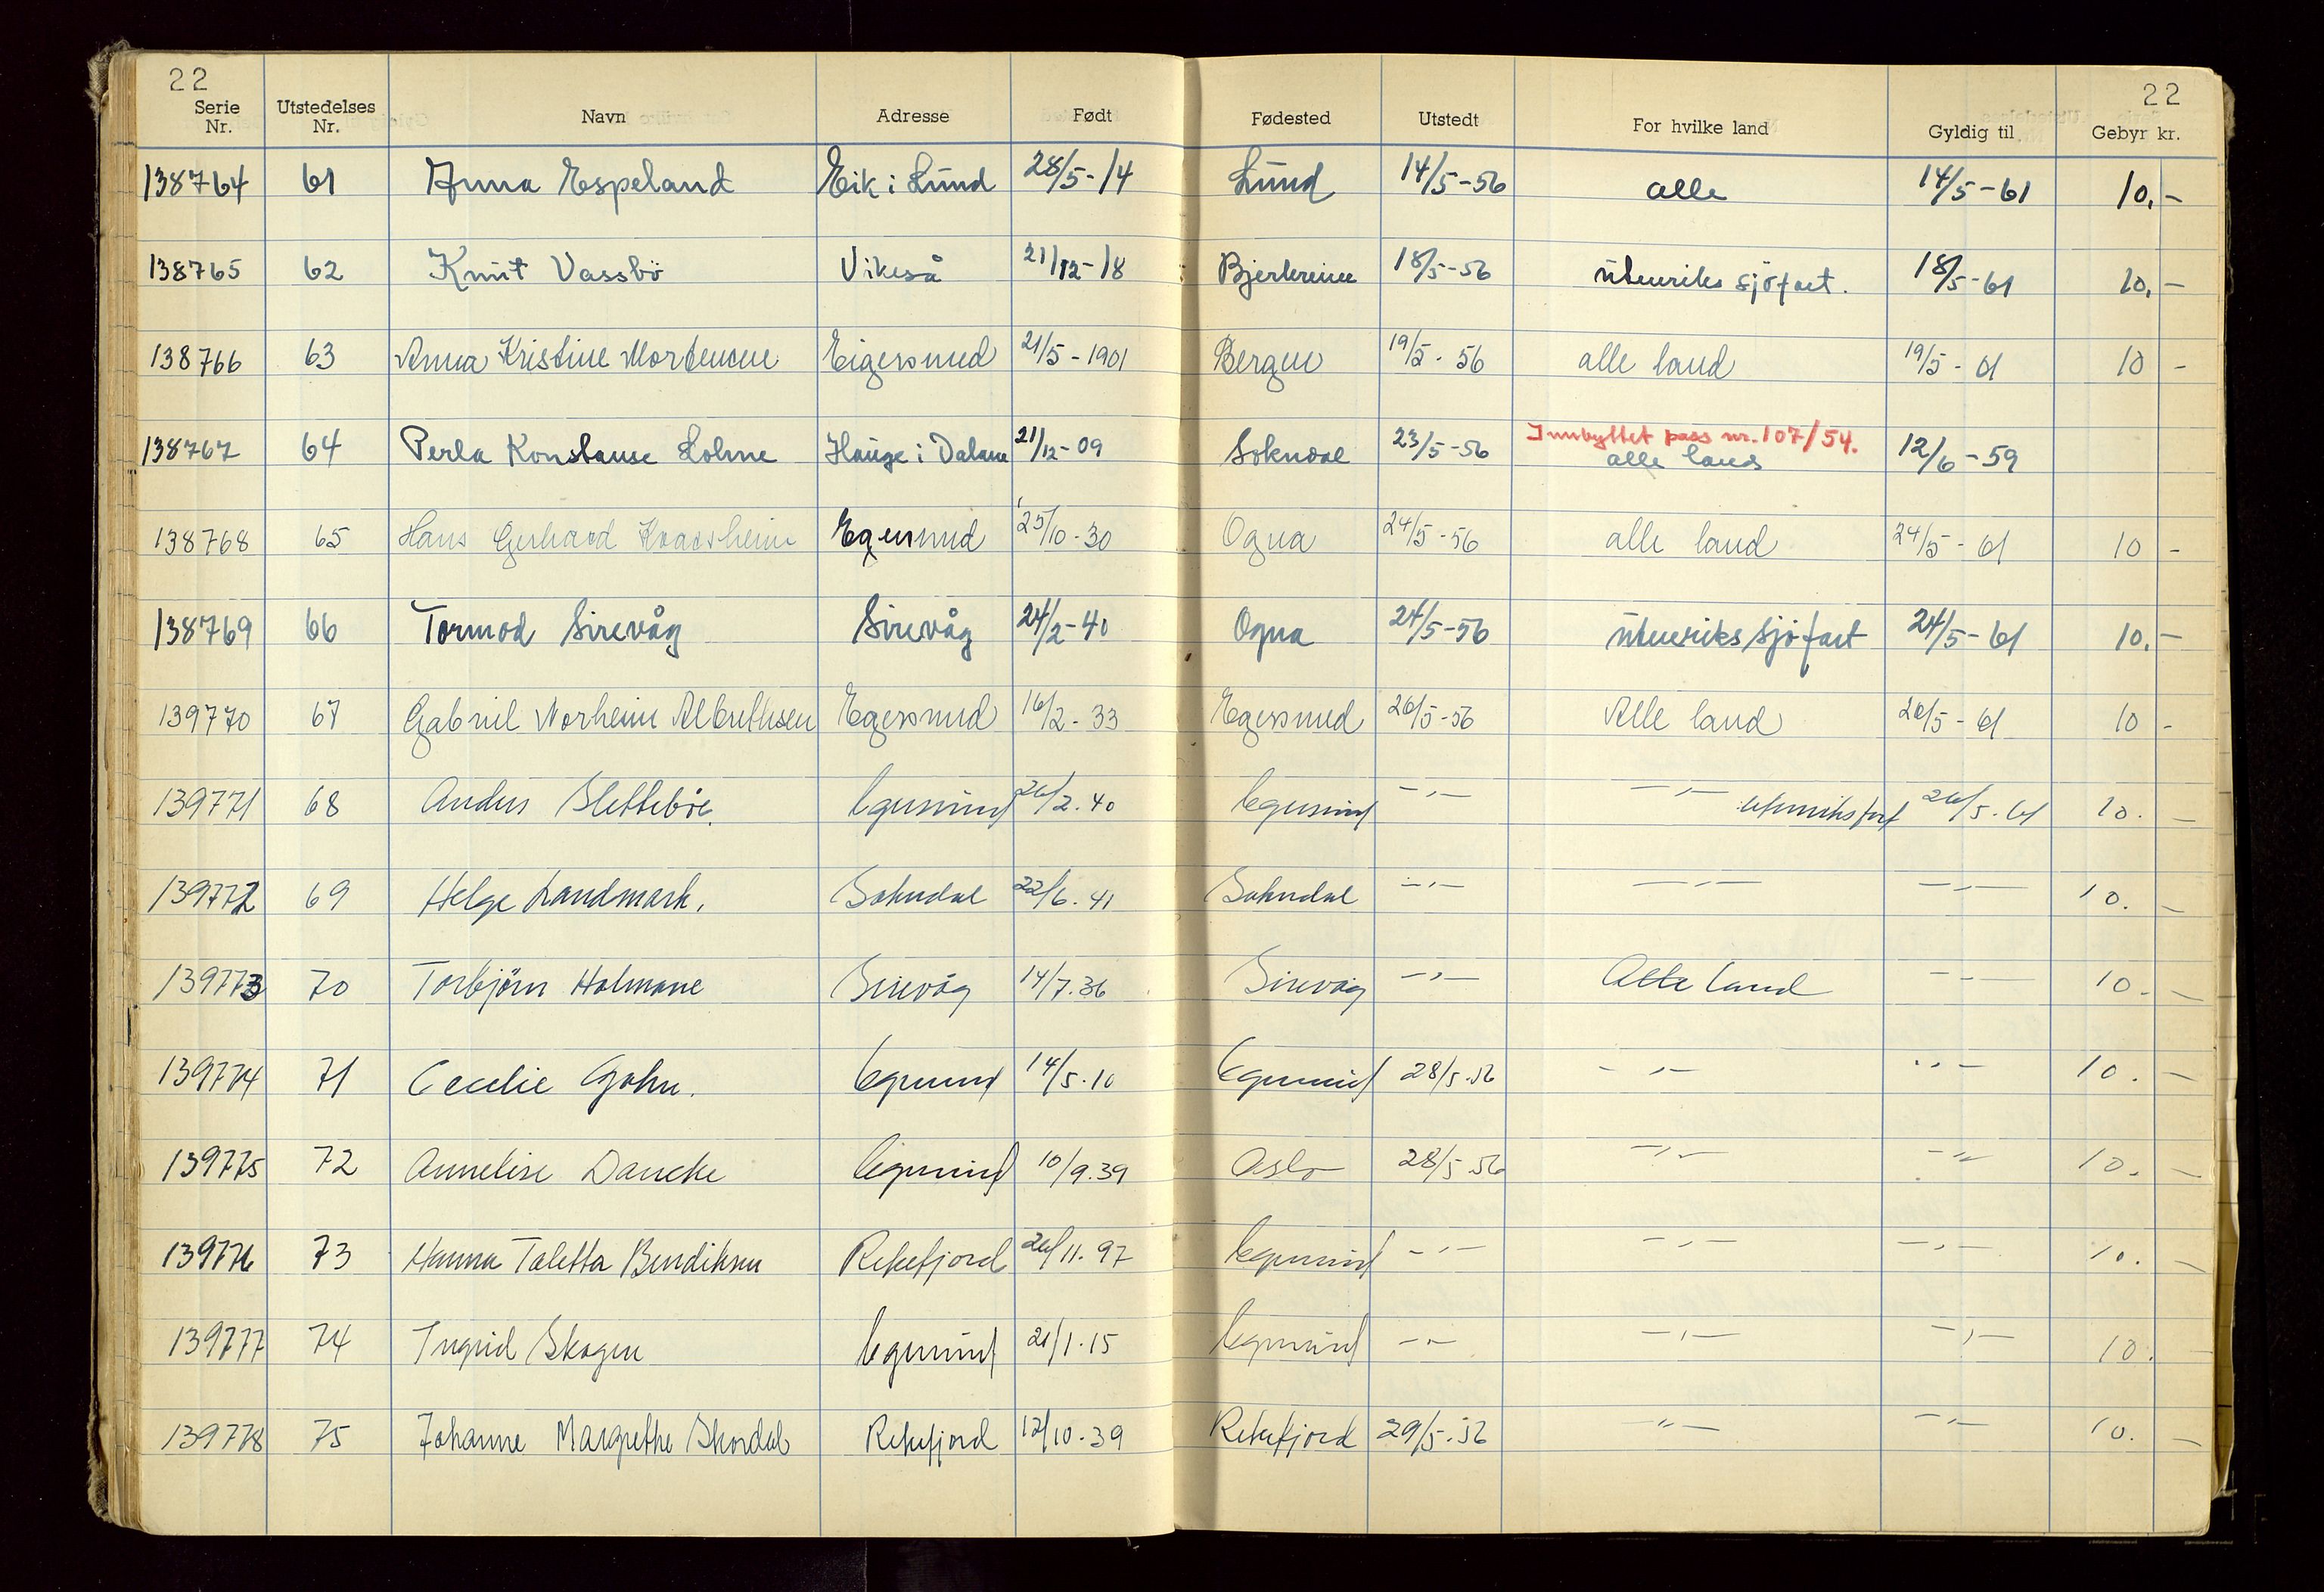 22 22
Serie Nr. Utstedelses Nr. Navn Adresse Født Fødested Utstedt For hvilke land Gyldig til Gebyr kr.
138764 61 Anna Espeland Eik i Lund 28/5-14 Lund 14/5-56 alle 14/5-61 10.-
138765 62 Knut Vassbö Vikeså 21/12-18 Bjerkreim 18/5-56 utenriks sjöfart. 18/5-61 10.-
138766 63 Anna Kristine Mortensen Eigersund 21/5-1901 Bergen 19/5-56 alle land 19/5-61 10 -
Innbyttet pass nr. 107/54.
138767 64 Perla Konstanse Lohne Hauge i Dalane 21/12-09 Sokndal 23/5-56 alle land 12/6-59
138768 65 Hans Gerhard Kvassheim Egersund 25/10-30 Ogna 24/5-56 alle land 24/5-61 10 -
138769 66 Tormod Sirevåg Sirevåg 24/2-40 Ogna 24/5-56 utenriks sjöfart 24/5-61 10.-
139770 67 Gabriel Norheim Albrethsen Egersund 16/2-33 Egersund 26/5-56 Alle land 26/5-61 10 -
139771 68 Anders Sletteböe. Egersund 26/2.40 Egersund -"- -"- utenriksfart 26/5.61 10. -
139772 69 Helge Landmark. Sokndal 22/6.41 Sokndal -"- -"- -"- 10. -
139773 70 Torbjörn Holmane Sirevåg 14/7.36 Sirevåg -"- Alle land -"- 10. -
139774 71 Cecilie Gohn. Egersund 14/5.10 Egersund 28/5.56 -"- -"- 10. -
139775 72 Annelise Dancke Egersund 10/9.39 Oslo 28/5.56 -"- -"- 10. -
139776 73 Hanna Taletta Bendiksen Rekefjord 26/11.97 Egersund -"- -"- -"- 10. -
139777 74 Ingrid Skogen Egersund 21/1.15 Egersund -"- -"- -"- 10. -
139778 75 Johanne Margrethe Skordal Rekefjord 12/10.39 Rekefjord 29/5.56 -"- -"- 10. -